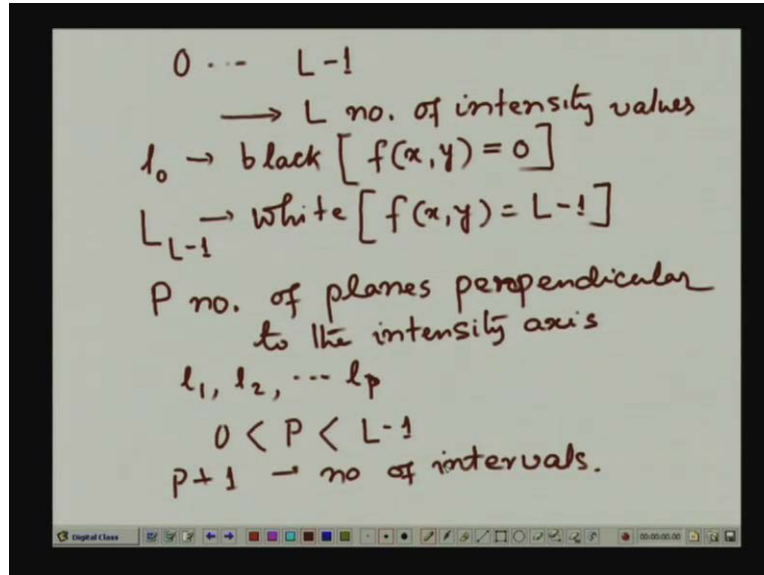 0 --- L-1
→ L no. of intensity values
l₀ → black [f(x,y) = 0]
L_{L-1} → white [f(x,y) = L-1]
P no. of planes perpendicular
to the intensity axis
l₁, l₂, --- l_P
0 < P < L-1
P+1 → no of intervals.
Digital Class 00:00:00.00